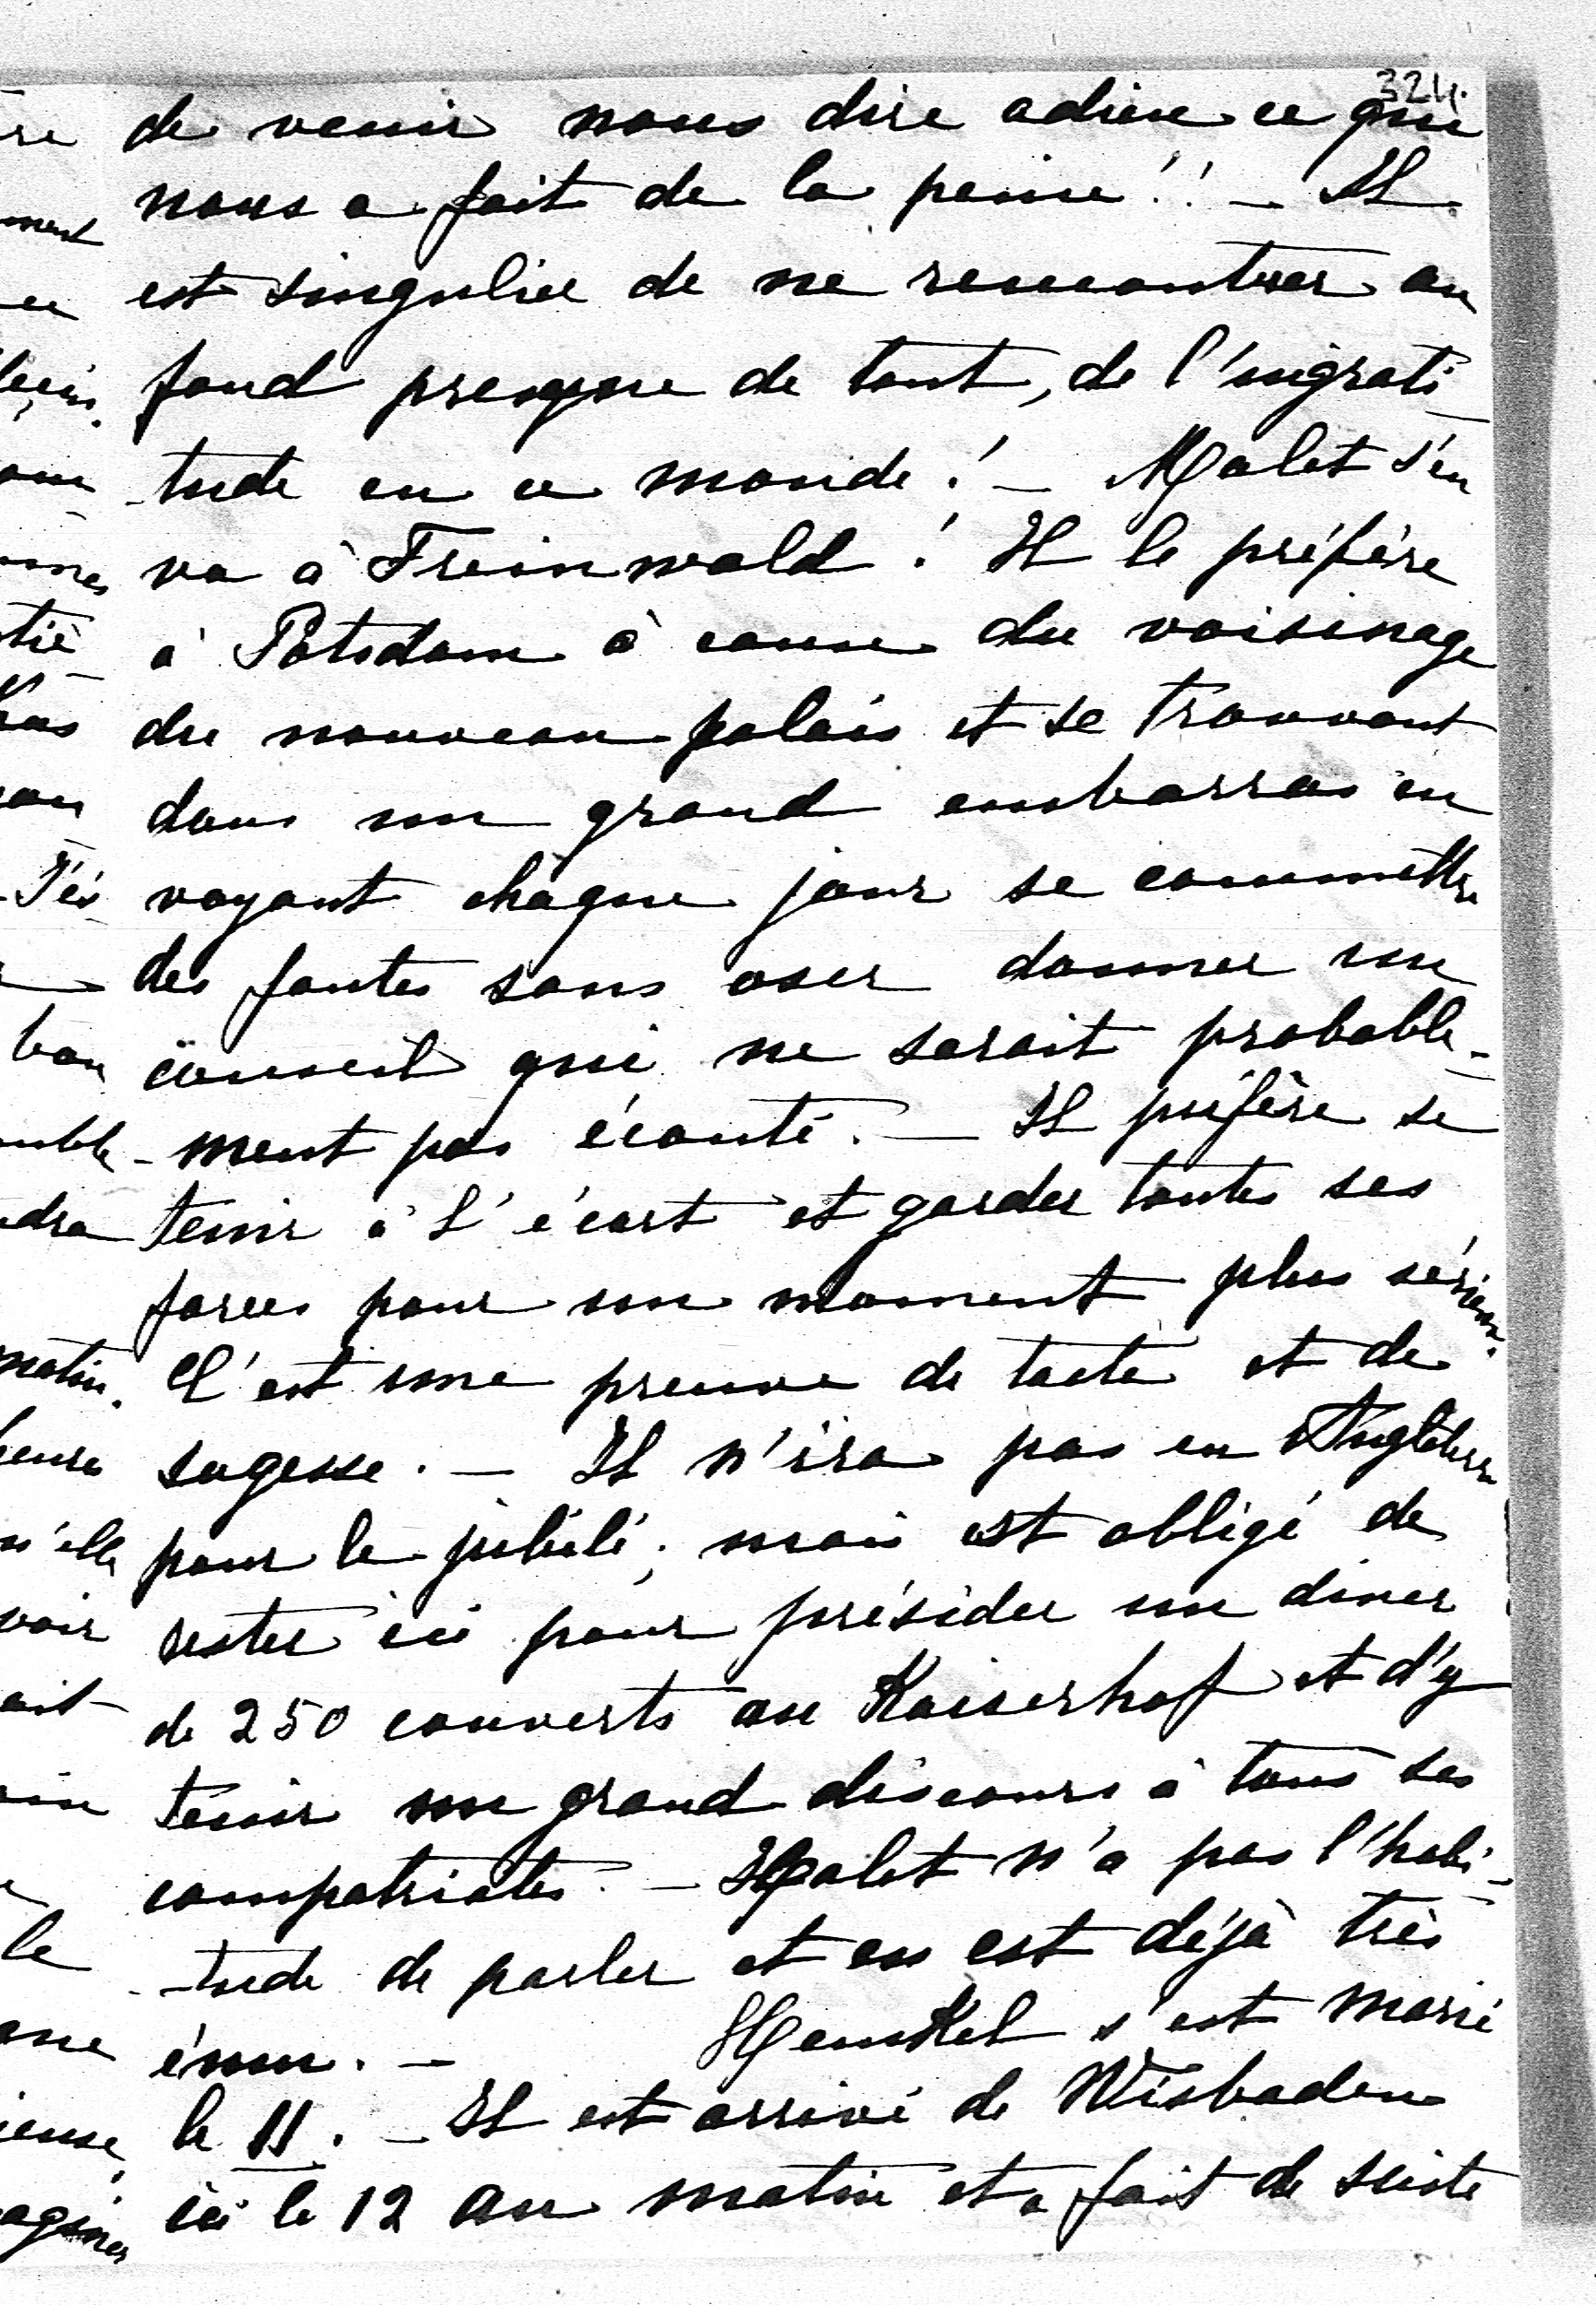 324.
de venir nous dire adieu ce qui
nous a fait de la peine!! — Il
est singulier de ne rencontrer au
fond presque de tout, de l'ingrati-
-tude en ce monde! — Malet s'en
va à Freinwald! Il le préfère
à Potsdam à cause du voisinage
du nouveau palais et se trouvant
dans un grand embarras en
voyant chaque jour se commettre
des fautes sans oser donner un
conseil qui ne serait probable-
-ment pas écouté. — Il préfère se
tenir à l'écart et garder toutes ses
forces pour un moment plus sérieux.
C'est une preuve de tacte et de
sagesse. — Il n'ira pas en Angleterre
pour le jubilé; mais est obligé de
rester ici pour présider un diner
de 250 couverts au Kaiserhof et d'y
tenir un grand discours à tous ses
compatriotes. — Malet n'a pas l'habi-
-tude de parler et en est déjà très
ému. — Henckel s'est marié
le 11. — Il est arrivé de Wisbaden
ici le 12 au matin et a fait de suite